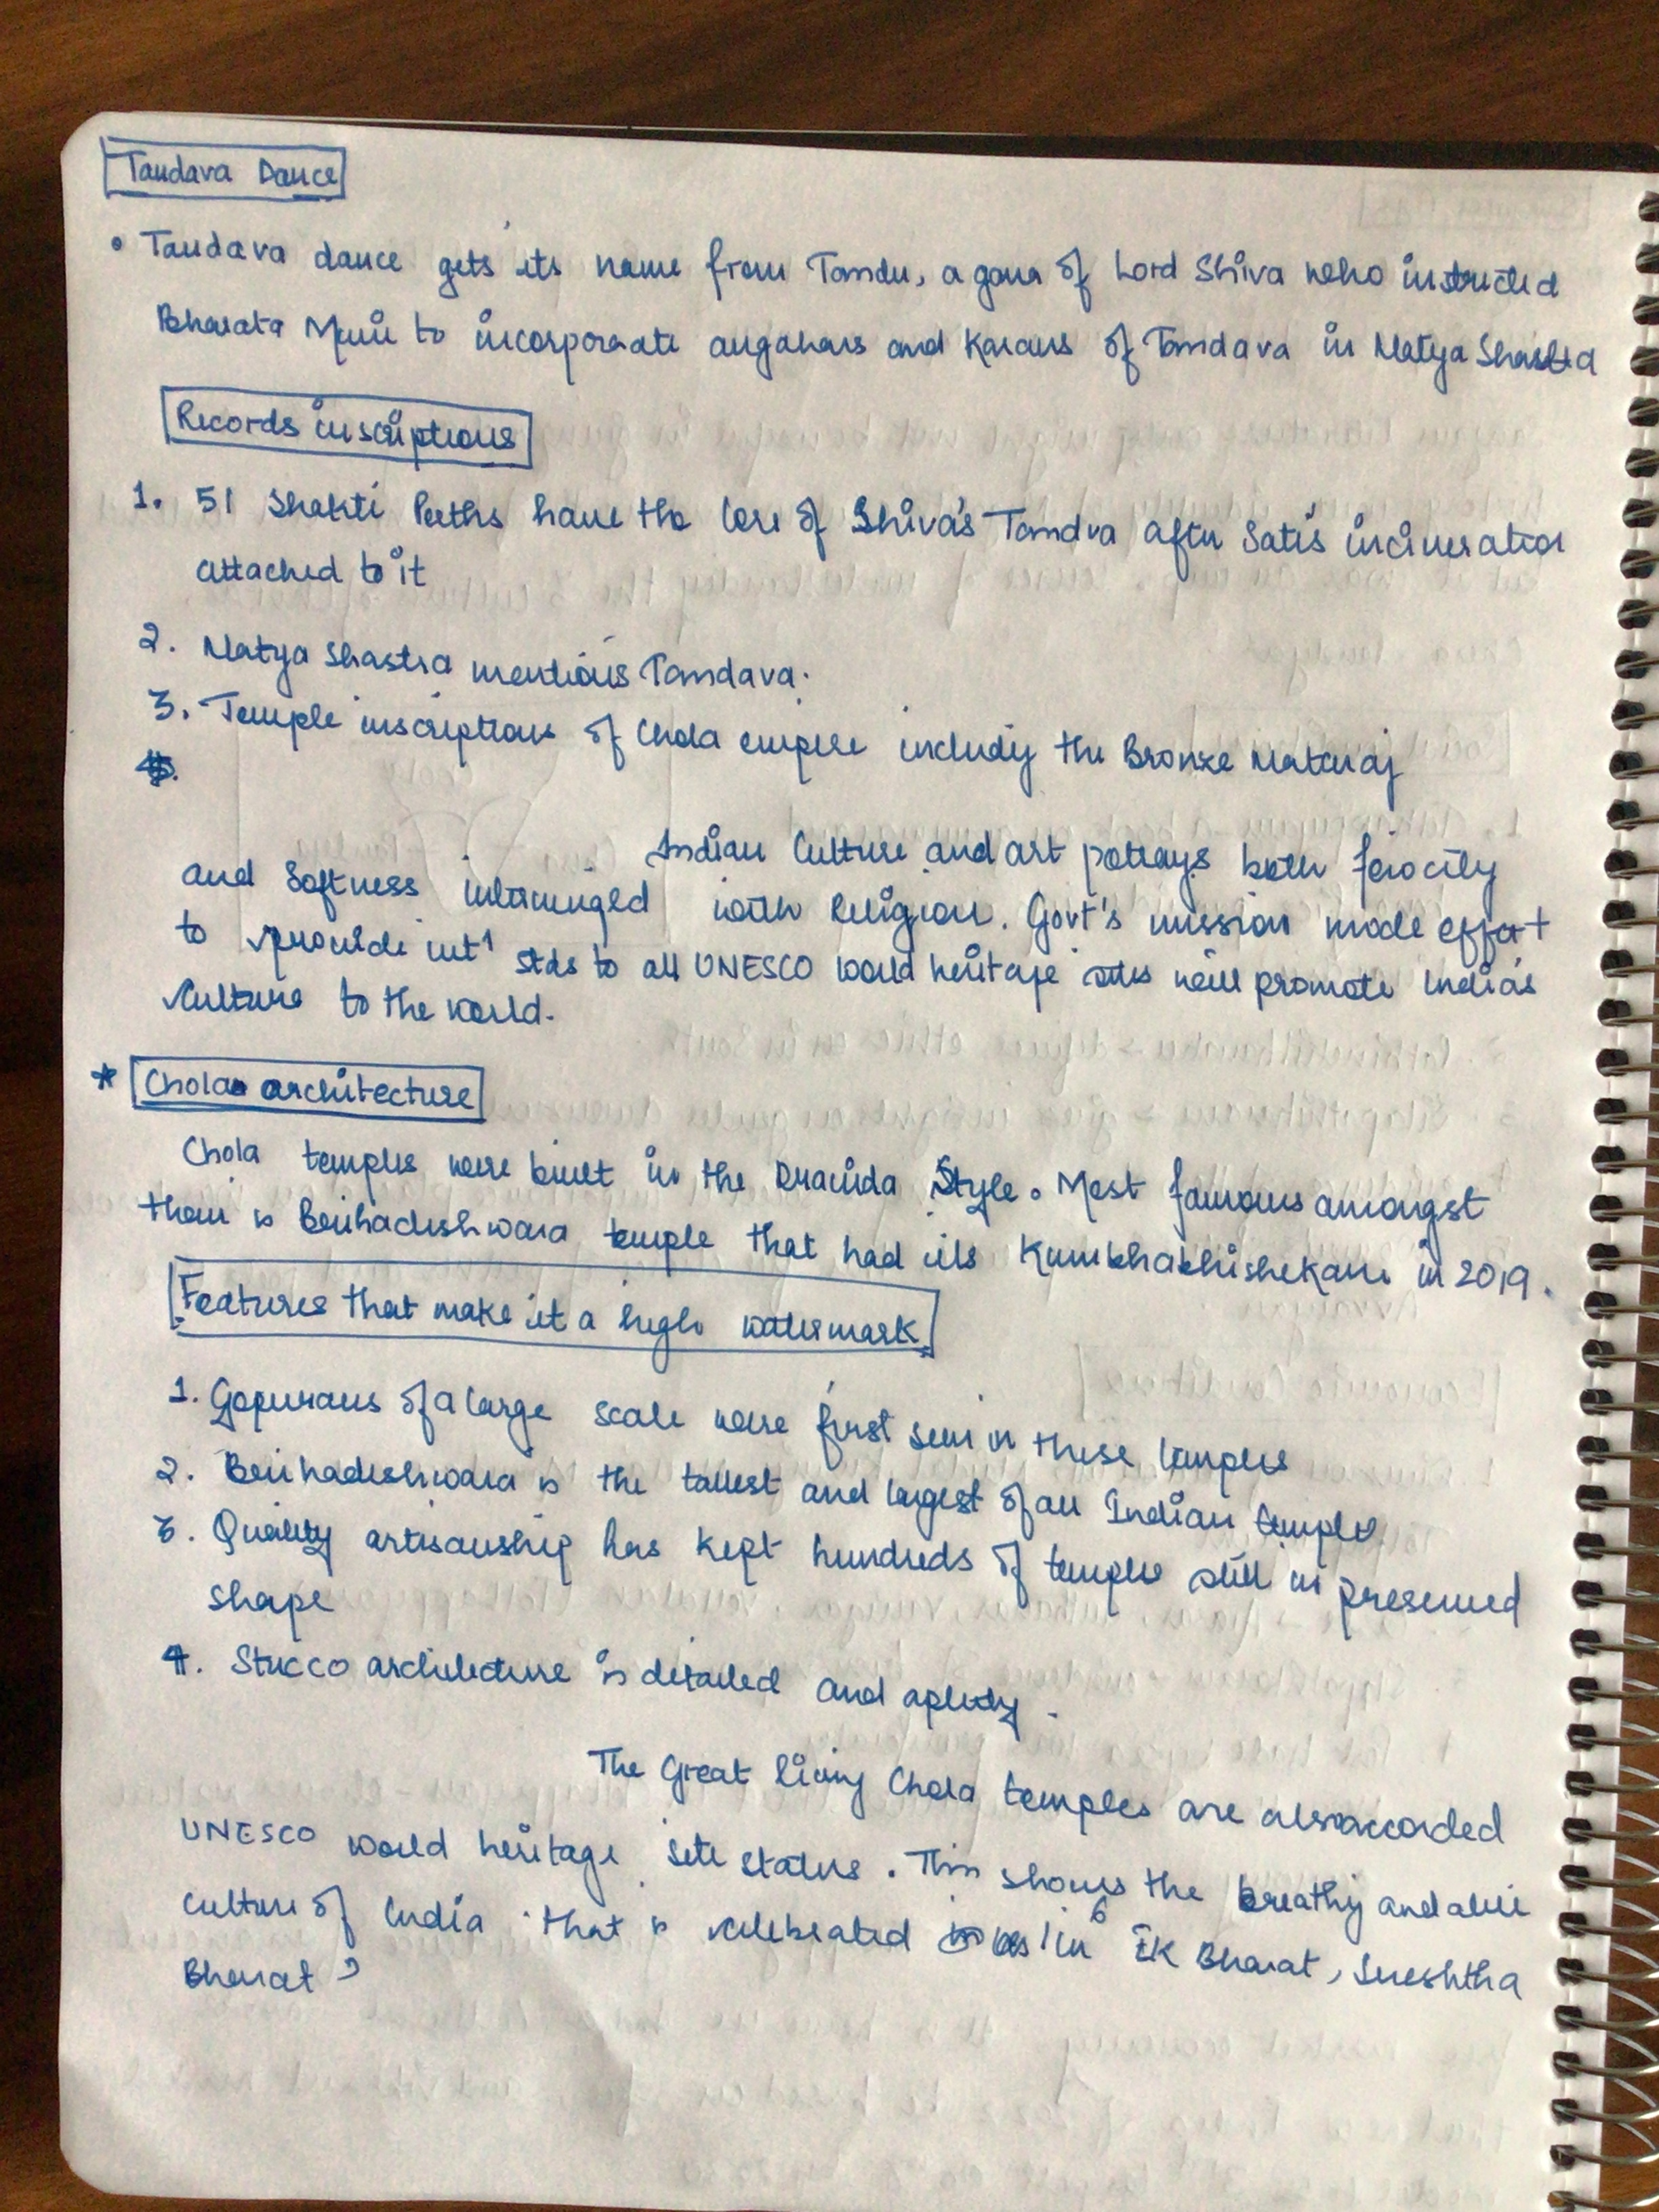 Tandava Dance
• Tandava dance gets its name from Tandu, a gana of Lord Shiva who instructed
Bharata Muni to incorporate angahars and Karans of Tandava in Natya Shastra
Records inscriptions
1. 51 Shakti Peeths have the lore of Shiva's Tandva after Sati's incineration
attached to it
2. Natya Shastra mentions Tandava.
3. Temple inscriptions of Chola empire including the Bronze Nataraj
Indian Culture and art potrays both ferocity
and Softness intermingled with Religion. Govt's mission mode effort
to provide int'l stds to all UNESCO World heritage sites will promote India's
Culture to the world.
* Chola architecture
Chola temples were built in the Dravida Style. Most famous amongst
them is Berihadeshwara temple that had its Kumbhabhishekam in 2019.
Features that make it a high watermark
1. Gopurams of a large scale were first seen in these temples
2. Berihadeshwara is the tallest and largest of all Indian temples
3. Quality artisanship has kept hundreds of temples still in preserved
shape
4. Stucco architecture is detailed and
The Great living Chola temples are also accorded
UNESCO world heritage site status. This shows the breathing and alive
culture of India that is celebrated in 'Ek Bharat, Sreshtha
Bharat'